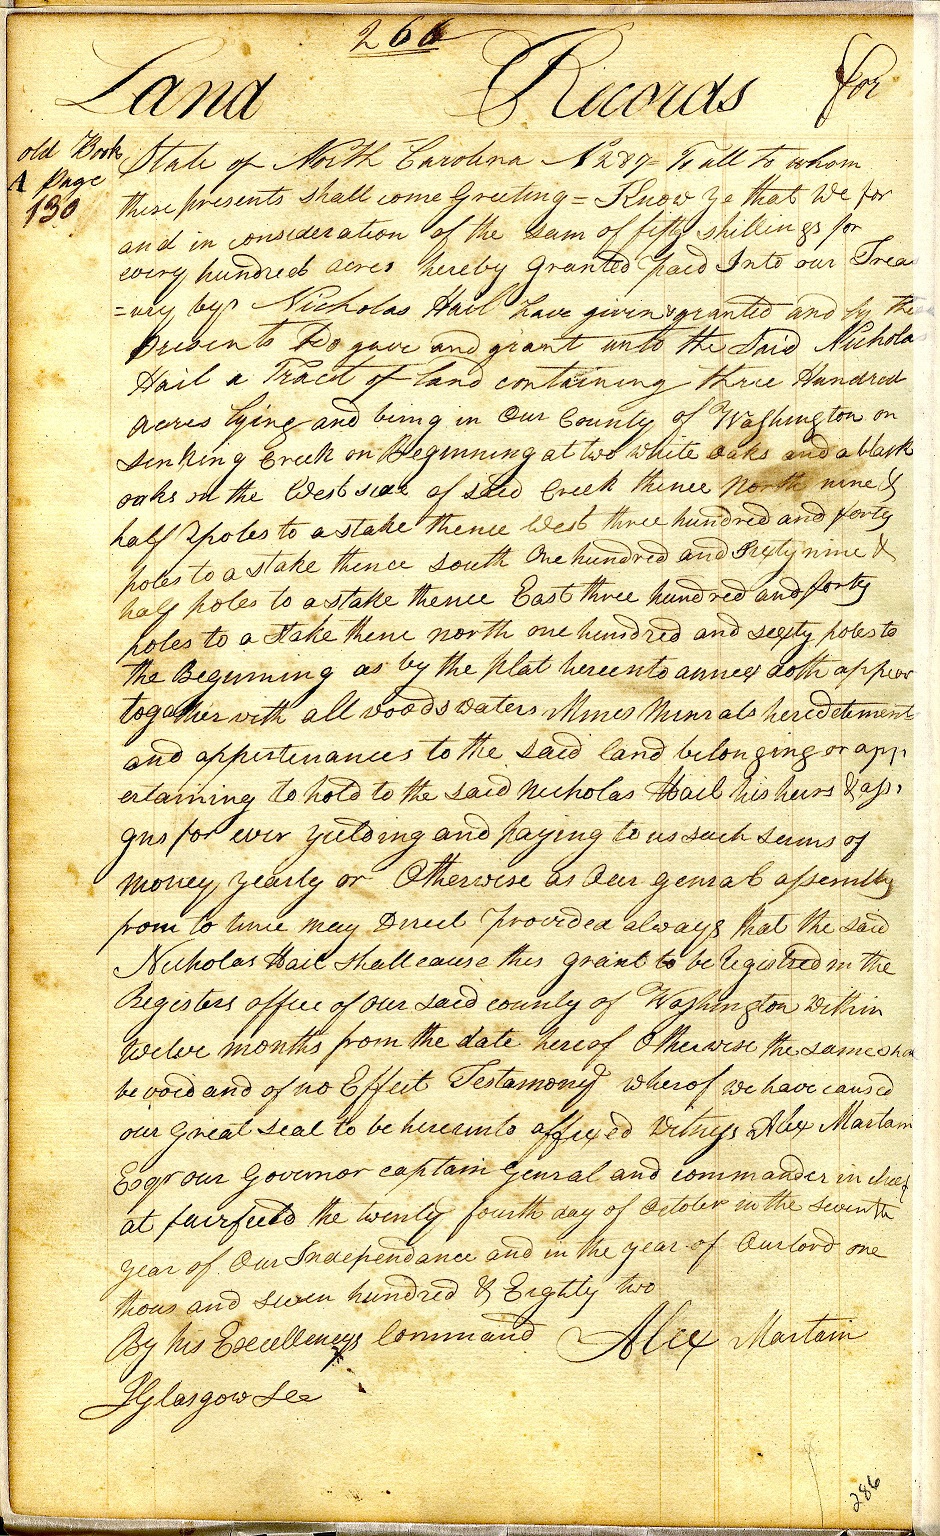 266
Land Records for
old Book
A page
130
State of North Carolina No 287= To all to whom
these presents shall come Greeting = Know ye that We for
and in consideration of the sum of fifty shillings for
every hundred acres hereby granted paid Into our Trea
=ury by Nicholas Hail have given & granted and by the
presents Do gave and grant unto the Said Nicholas
Hail a Tract of land containing three Hundred
acres lying and being in Our County of Washington on
Sinking Creek on Beginning at two white oaks and a black
oaks on the West side of said Creek thence North nine &
half poles to a stake thence West three hundred and forty
poles to a stake thence south One hundred and Sixty nine &
half poles to a stake thence East three hundred and forty
poles to a stake thenc north one hundred and sixty poles to
the Beginning as by the plat hereunto annex doth appear
together with all woods waters Mines Minrals heredetements
and appertenances to the said land belonging or app
ertaining to hold to the said Nicholas Hail his heirs & assi
gns for ever yielding and paying to us such sums of
money yearly or Otherwise as Our genral assembly
from to time may Direct provided always that the said
Nicholas Hail shall cause this grant to be registred in the
Registers office of our said county of Washington within
twelve months from the date hereof Otherwise the same shall
be void and of no Effect Testamony wherof we have caused
our great seal to be hereunto affixed Witness Alex Martain
Esqr our Governor captain genral and commander in chief
at fairfield the twenty fourth day of October in the seventh
year of Our Independance and in the year of Our lord one
thous and seven hundred & Eighty two
By his Excellencys Command Alex Martain
J Glasgow Sec
286